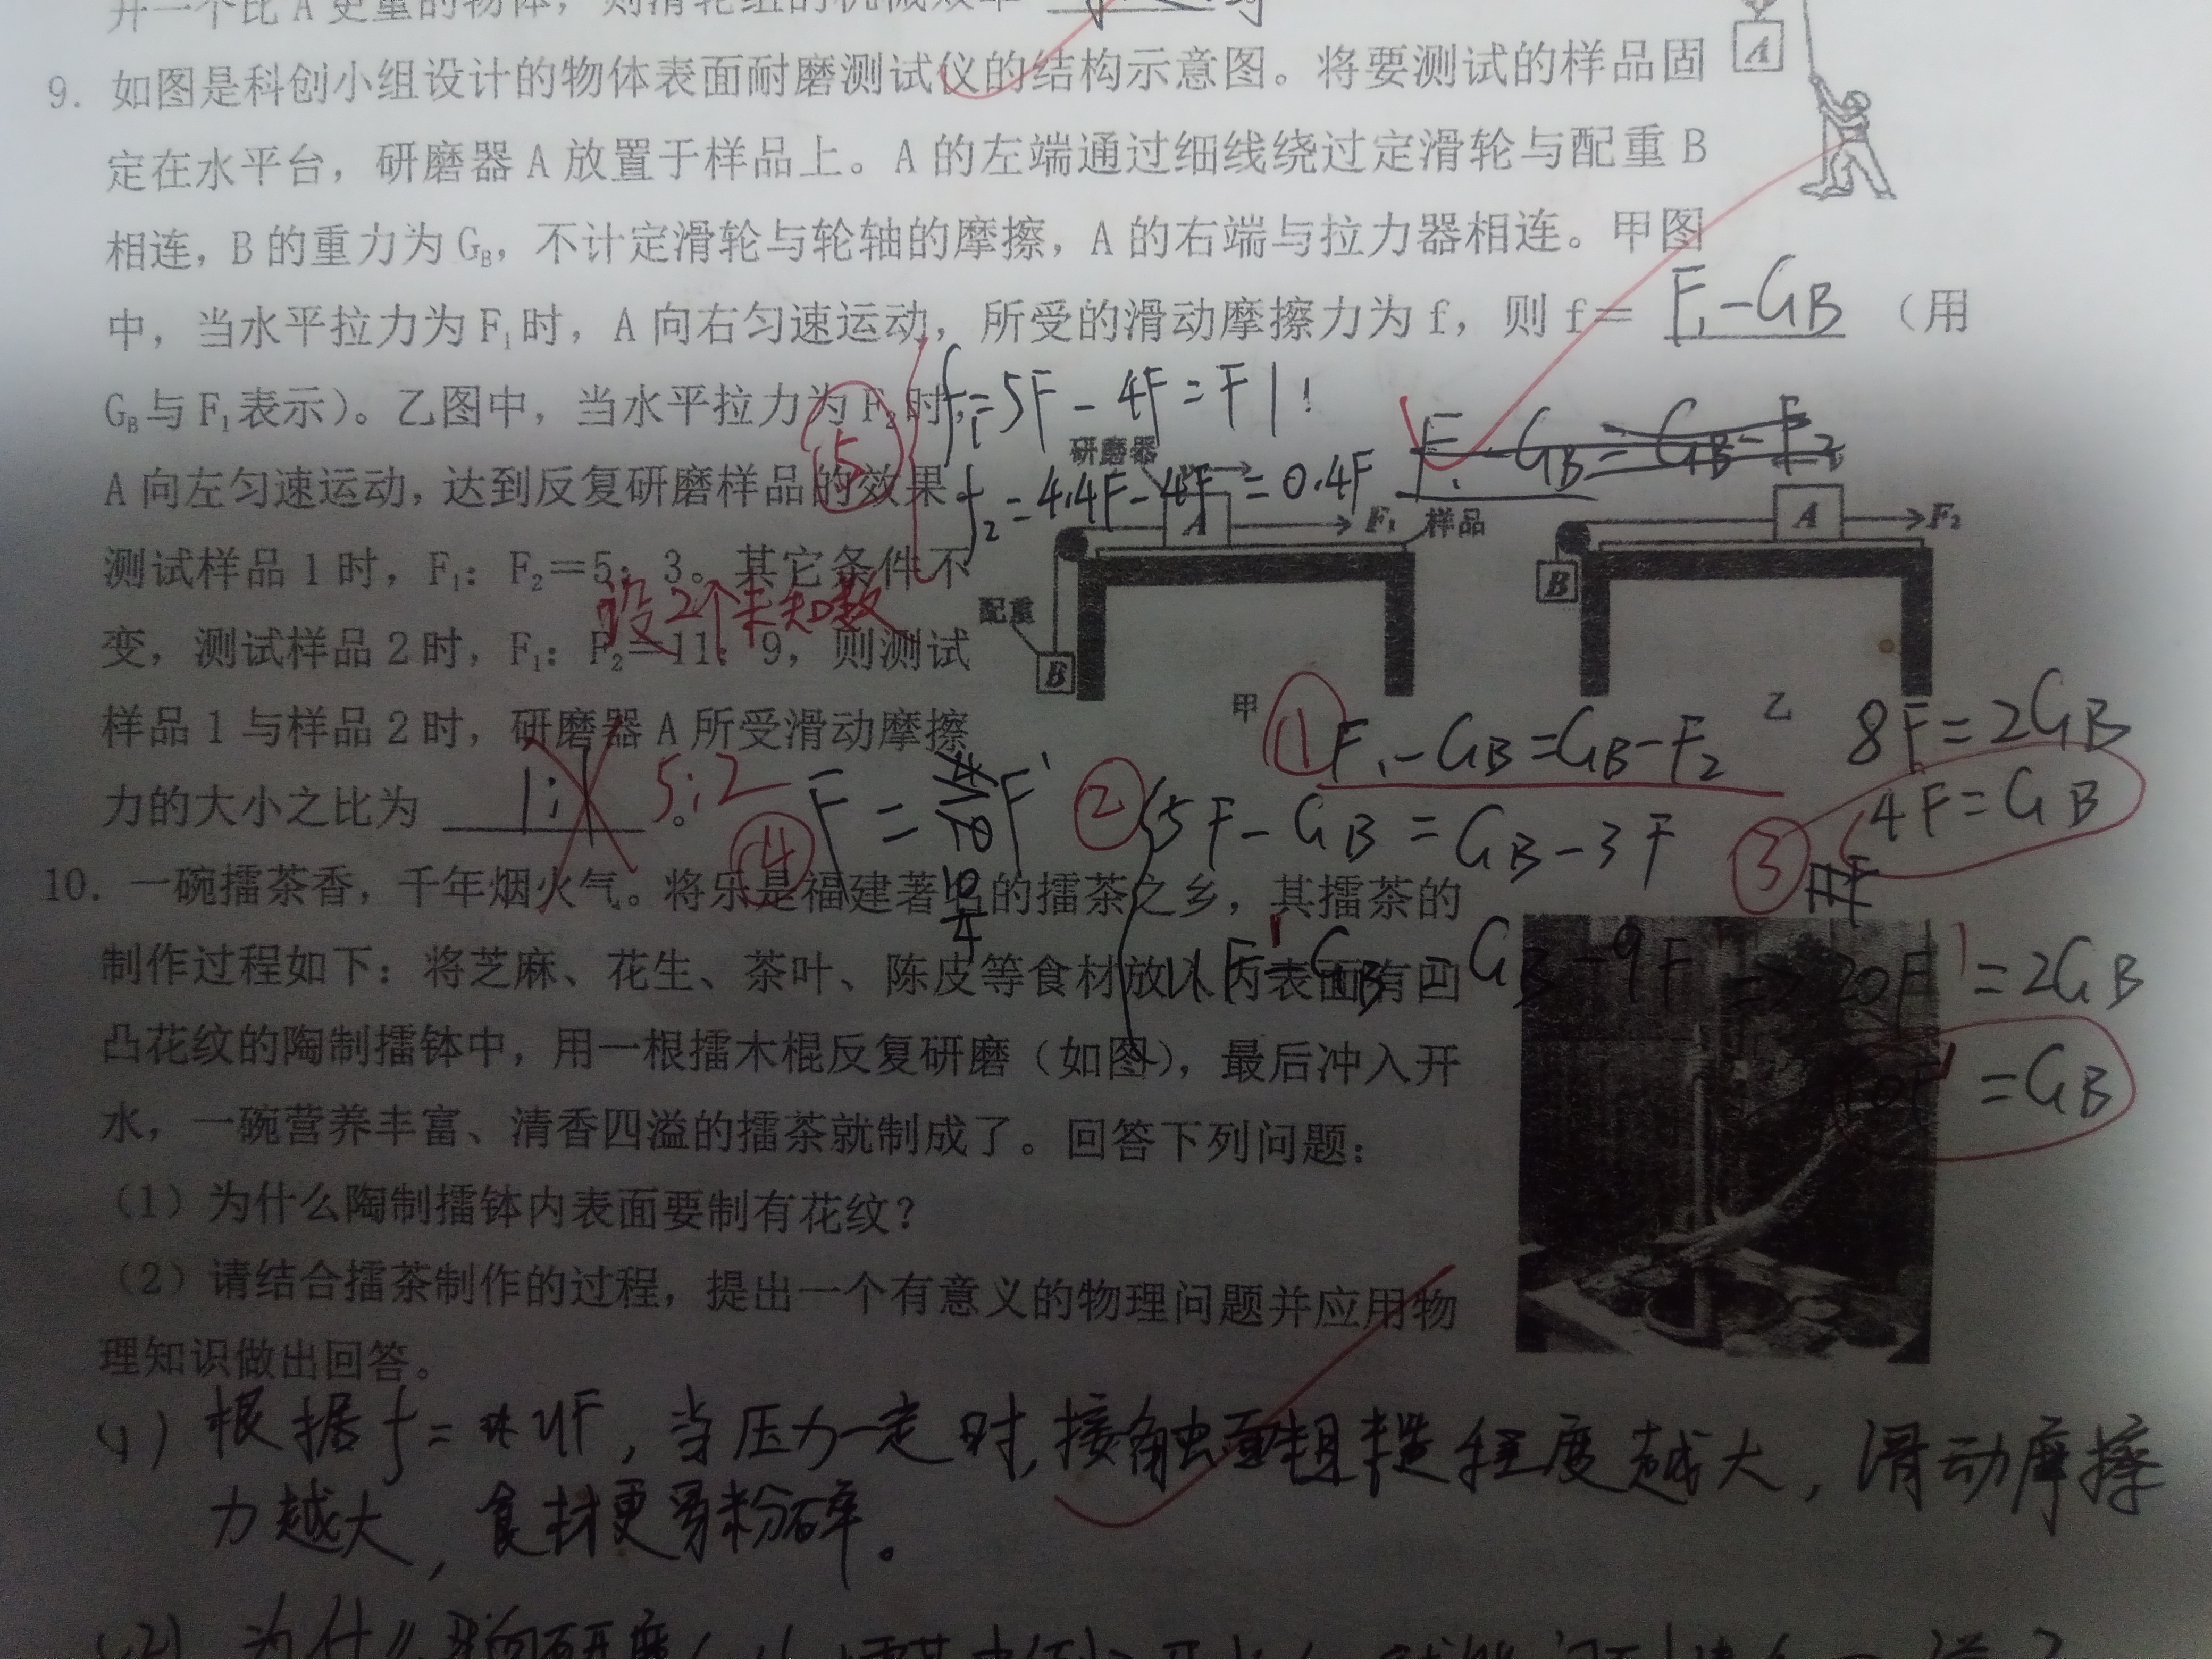 升一个比 A 更重的物体，则滑轮组的机械效率
A
9. 如图是科创小组设计的物体表面耐磨测试仪的结构示意图。将要测试的样品固
定在水平台，研磨器 A 放置于样品上。A 的左端通过细线绕过定滑轮与配重 B
相连，B 的重力为 G_B，不计定滑轮与轮轴的摩擦，A 的右端与拉力器相连。甲图
中，当水平拉力为 F₁ 时，A 向右匀速运动，所受的滑动摩擦力为 f，则 f＝ F₁-G_B （用
G_B 与 F₁ 表示）。乙图中，当水平拉力为 F₂ 时，
f₁=5F-4F=F
A 向左匀速运动，达到反复研磨样品的效果
⑤
f₂=4.4F-4F=0.4F
F₁-G_B=G_B-F₂
研磨器
A
F₁
样品
A
F₂
B
测试样品 1 时，F₁：F₂＝5：3。其它条件不
设2个未知数
配重
B
变，测试样品 2 时，F₁：F₂＝11：9，则测试
甲
乙
样品 1 与样品 2 时，研磨器 A 所受滑动摩擦
① F₁-G_B=G_B-F₂
8F=2G_B
力的大小之比为 1:1 。
5:2
④ F=
② 5F-G_B=G_B-3F
③
4F=G_B
10. 一碗擂茶香，千年烟火气。将乐是福建著名的擂茶之乡，其擂茶的
制作过程如下：将芝麻、花生、茶叶、陈皮等食材放入内表面有凹
11F'-G_B=G_B-9F' => 20F'=2G_B
凸花纹的陶制擂钵中，用一根擂木棍反复研磨（如图），最后冲入开
10F'=G_B
水，一碗营养丰富、清香四溢的擂茶就制成了。回答下列问题：
（1）为什么陶制擂钵内表面要制有花纹？
（2）请结合擂茶制作的过程，提出一个有意义的物理问题并应用物
理知识做出回答。
(1) 根据f=μF，当压力一定时，接触面粗糙程度越大，滑动摩擦
力越大，食材更易粉碎。
(2) 为什么